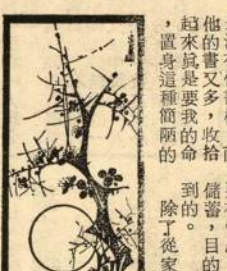 他的書又多，收拾
起來眞是要我的命
，置身這種簡陋的
儲蓄，目的
到的。
除了從家